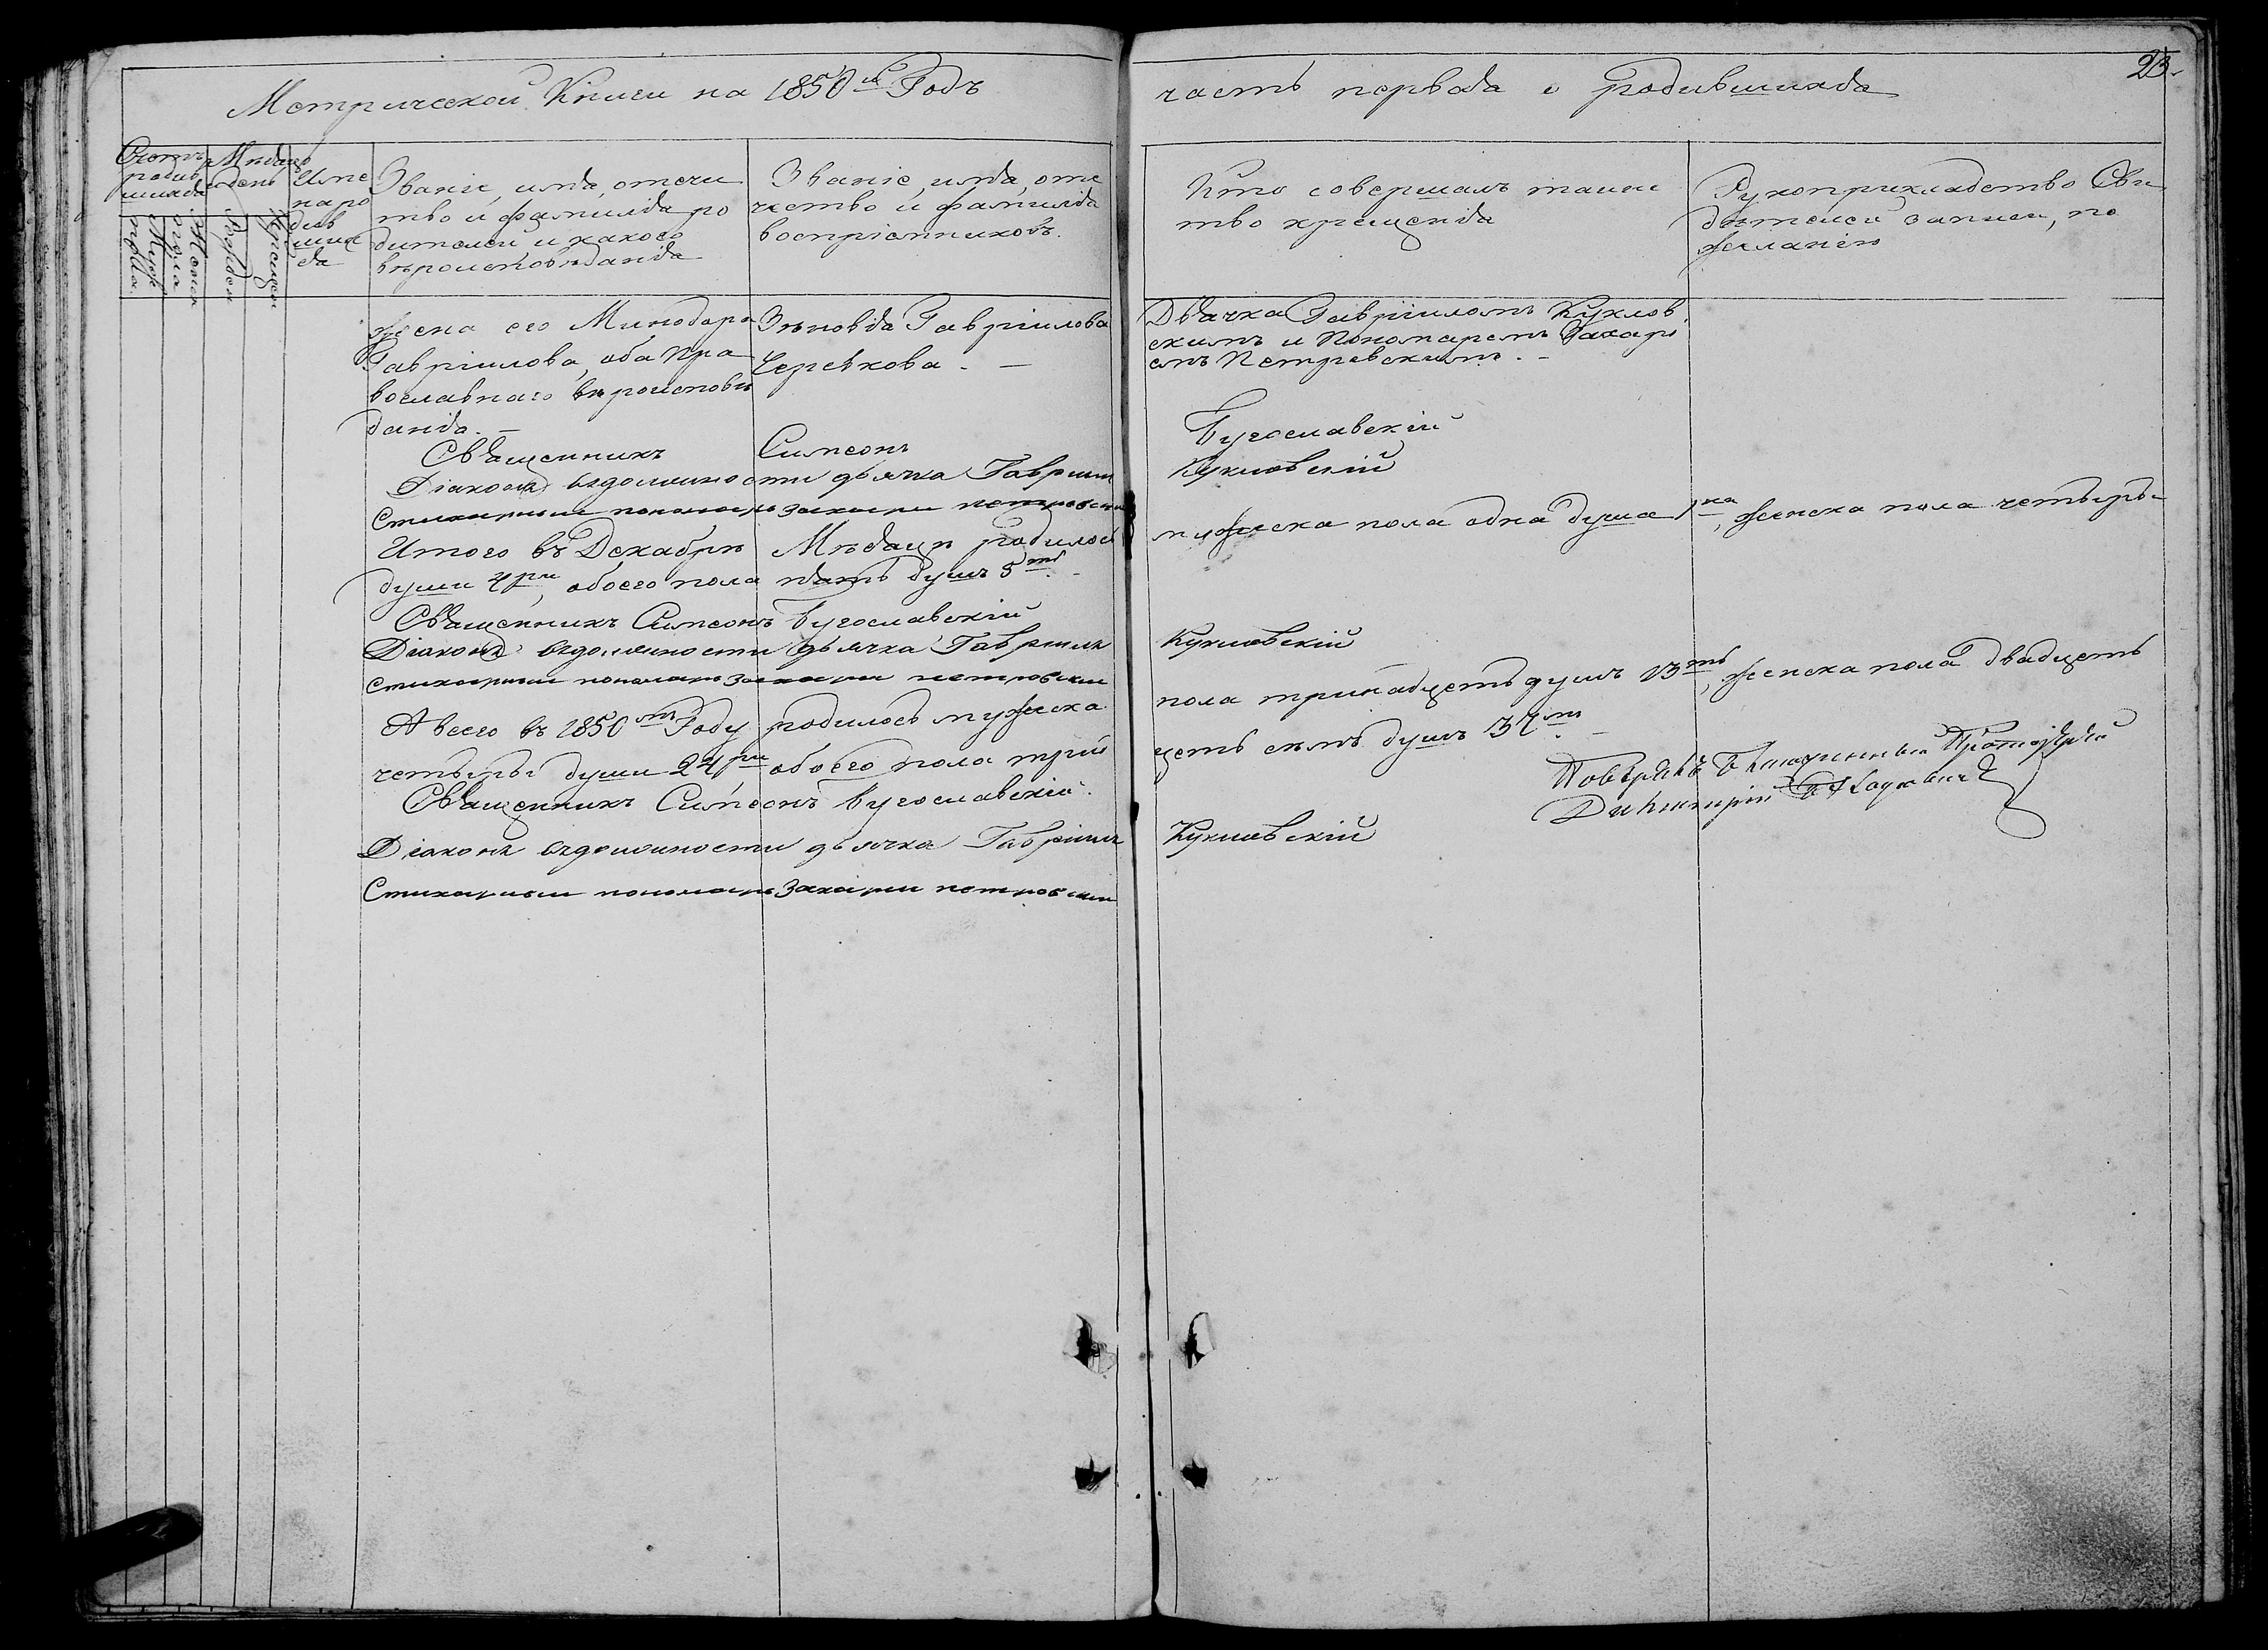 Метрической Книги на 1850й Годъ
часть первая о родившихся
23.
Счетъ родив шихся
Мужеска пола.
Женска пола
Мѣсяцъ и день
Рожден
Крещен
Имена родив шихся
Званіе, имя, отече
тво и фамилія ро
дителей и какого
вѣроисповѣданія
Званіе, имя, оте
чество и фамилія
воспріемниковъ.
Кто совершалъ таинс
тво крещенія
Рукоприкладство Сви
дѣтелей записи, по
желанію
жена его Минодора
Гавріилова, оба Пра
вославнаго вѣроисповѣ
данія. –
Зѣновія Гавріилова
–
Дьячка Гавріиломъ Куклов
скимъ и Пономаремъ Захарі
емъ Петровскимъ. –
Священникъ Симеонъ Бугославскій
Діаконъ вздолжности дьячка Гавріилъ Кукловскій
Стихарный пономарь Захарій петровскій
Итого въ Декабрѣ Мѣсяцѣ родилось мужеска пола одна душа 1на, женска пола четыре
души 4ри, обоего пола пять душъ 5ть. –
Священникъ Симеонъ Бугославскій
Діаконъ вздолжности дьячка Гавріилъ Кукловскій
Стихарный пономарь Захарій петровскій
А всего въ 1850мъ Году родилось мужеска пола тринадцеть душъ 13ть, женска пола двадцеть
четыре души 24ри обоего пола трий цеть семъ душъ 37мъ. –
Священникъ Симеонъ Бугославскій
Діаконъ вздолжности дьячка Гавріилъ Кукловскій
Стихарный пономарь Захарій петровскій
Повѣрялъ Благочинный Протоіерей
Димитрій